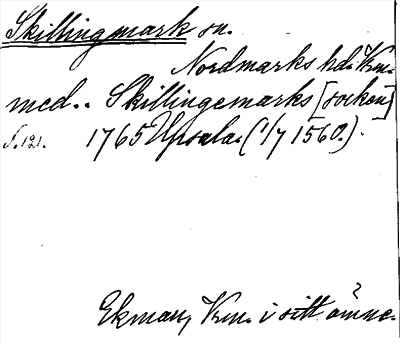 Skillingmark sn.
Nordmarks hd. Vrm.
med.. Skillingemarks [socken]
s. 121. 1765 Upsala. (1/7 1560.).
Ekman, Vrm. i sitt ämne.